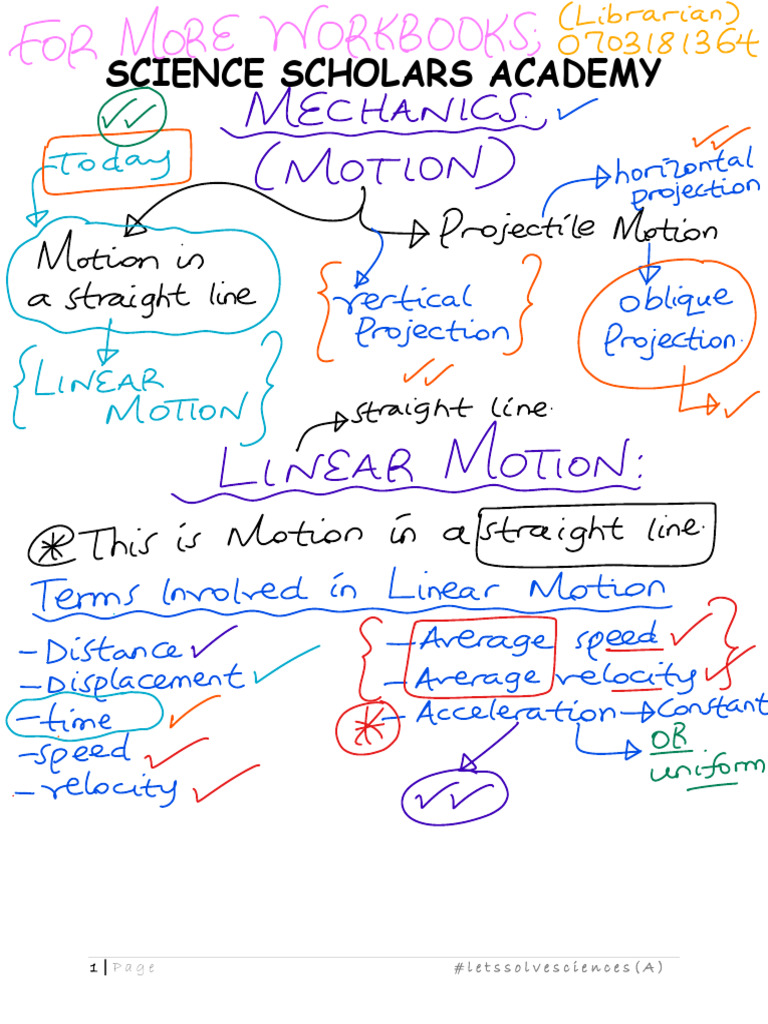 FOR MORE WORKBOOKS; (Librarian)
0703181364
SCIENCE SCHOLARS ACADEMY
MECHANICS.
Today
(MOTION)
horizontal
projection
Projectile Motion
Motion in
a straight line
vertical
Projection
oblique
Projection.
{LINEAR
MOTION}
straight line.
LINEAR MOTION:
* This is Motion in a straight line.
Terms Involved in Linear Motion
- Distance
- Displacement
- time
- speed
- velocity
- Average speed
- Average velocity
* - Acceleration → Constant
OR
uniform
1 | Page
#letssolvesciences(A)